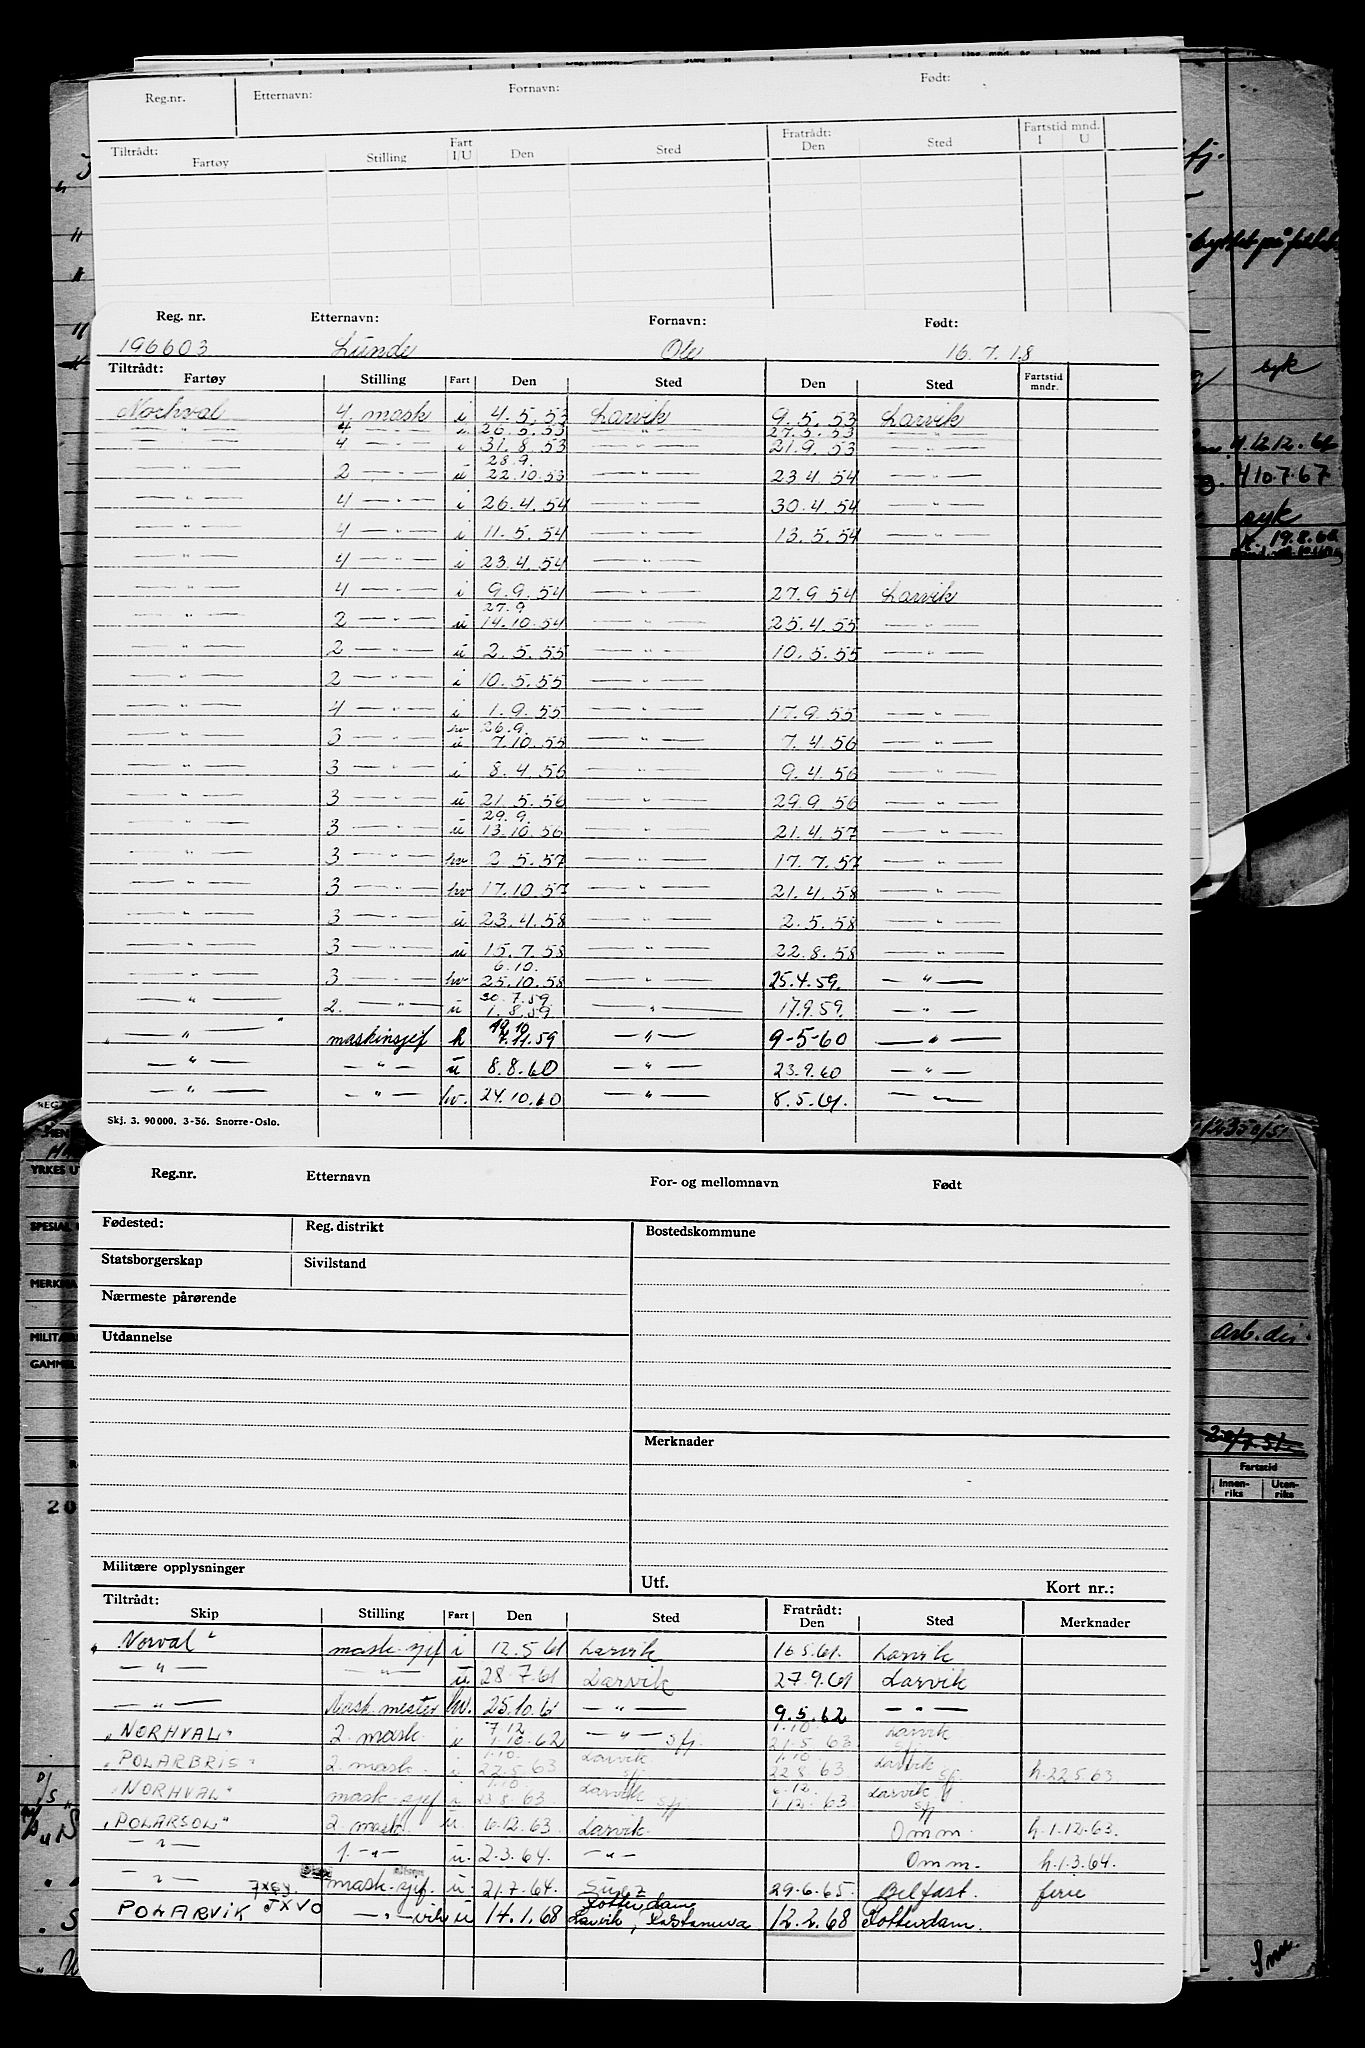 Reg.nr. Etternavn: Fornavn: Født:
Tiltrådt: Fratrådt: Fartstid mnd.
Fartøy Stilling Fart I/U Den Sted Den Sted I U
Reg. nr. Etternavn: Fornavn: Født:
196603 Lunde Ole 16.7.18
Tiltrådt:
Fartøy Stilling Fart Den Sted Den Sted Fartstid mndr.
Norhval 4. mask i 4.5.53 Larvik 9.5.53 Larvik
— " — 4 — " — i 26.5.53 — " — 27.5.53 — " —
— " — 4 — " — i 31.8.53 — " — 21.9.53 — " —
28.9.
— " — 2 — " — u 22.10.53 — " — 23.4.54 — " —
— " — 4 — " — i 26.4.54 — " — 30.4.54 — " —
— " — 4 — " — i 11.5.54 — " — 13.5.54 — " —
— " — 4 — " — i 23.4.54 — " —
— " — 4 — " — i 9.9.54 — " — 27.9.54 Larvik
27.9
— " — 2 — " — u 14.10.54 — " — 25.4.55 — " —
— " — 2 — " — u 2.5.55 — " — 10.5.55 — " —
— " — 2 — " — i 10.5.55 — " —
— " — 4 — " — i 1.9.55 — " — 17.9.55 — " —
hv 26.9.
— " — 3 — " — u 7.10.55 — " — 7.4.56 — " —
— " — 3 — " — i 8.4.56 — " — 9.4.56 — " —
— " — 3 — " — u 21.5.56 — " — 29.9.56 — " —
29.9.
— " — 3 — " — u 13.10.56 — " — 21.4.57 — " —
— " — 3 — " — hv 2.5.57 — " — 17.7.57 — " —
— " — 3 — " — hv 17.10.57 — " — 21.4.58 — " —
— " — 3 — " — u 23.4.58 — " — 2.5.58 — " —
— " — 3 — " — u 15.7.58 — " — 22.8.58 — " —
6.10.
— " — 3 — " — hv 25.10.58 — " — 25.4.59. — " —
30.7.59.
— " — 2. — " — u 1.8.59 — " — 17.9.59. — " —
19.10
— " — maskinsjef h 7.11.59 — " — 9-5-60 — " —
— " — — " — u 8.8.60 — " — 23.9.60 — " —
— " — — " — hv. 24.10.60 — " — 8.5.61. — " —
Skj. 3. 90000. 3-56. Snorre-Oslo.
Reg.nr. Etternavn For- og mellomnavn Født
Fødested: Reg. distrikt Bostedskommune
Statsborgerskap Sivilstand
Nærmeste pårørende
Utdannelse
Merknader
Militære opplysninger
Utf. Kort nr.:
Tiltrådt: Fratrådt:
Skip Stilling Fart Den Sted Den Sted Merknader
"Norval" mask.sjef i 12.5.61 Larvik 16.5.61. Larvik
— " — — " — u 28.7.61 Larvik 27.9.61 Larvik
— " — Mask.mester hv. 25.10.61 — " — 9.5.62 — " —
7.12 1.10
"NORHVAL" 2. mask. i 1.10.62 — " — sfj. 21.5.63 Larvik sfj
1.10. 1.10
"POLARBRIS" 2. mask. i 22.5.63 Larvik sfj 22.8.63. Larvik sfj h.22.5.63
1.10. 6.12
"NORHVAL" mask.sjef i 23.8.63. Larvik sfj 1.12.63 Larvik sfj
"POLARSOL" 2. mask. u. 6.12.63. Larvik. Omm. h.1.12.63.
— " — 1. — " — u. 2.3.64. — " — Omm. h.1.3.64.
— " — mask.sjef. u. 21.7.64. Suez 29.6.65. Belfast. ferie
POLARVIK JXVO — " — vik u 14.1.68 Rotterdam Larvik, 12.2.68 Rotterdam.
syk
4.12.12.66
4 10.7.67
syk
19.8.68
YRKES
SPESIAL
MERKNA
MILITÆ
GAMMEL
20
Arb.
Fartstid
Innen-riks Uten-riks